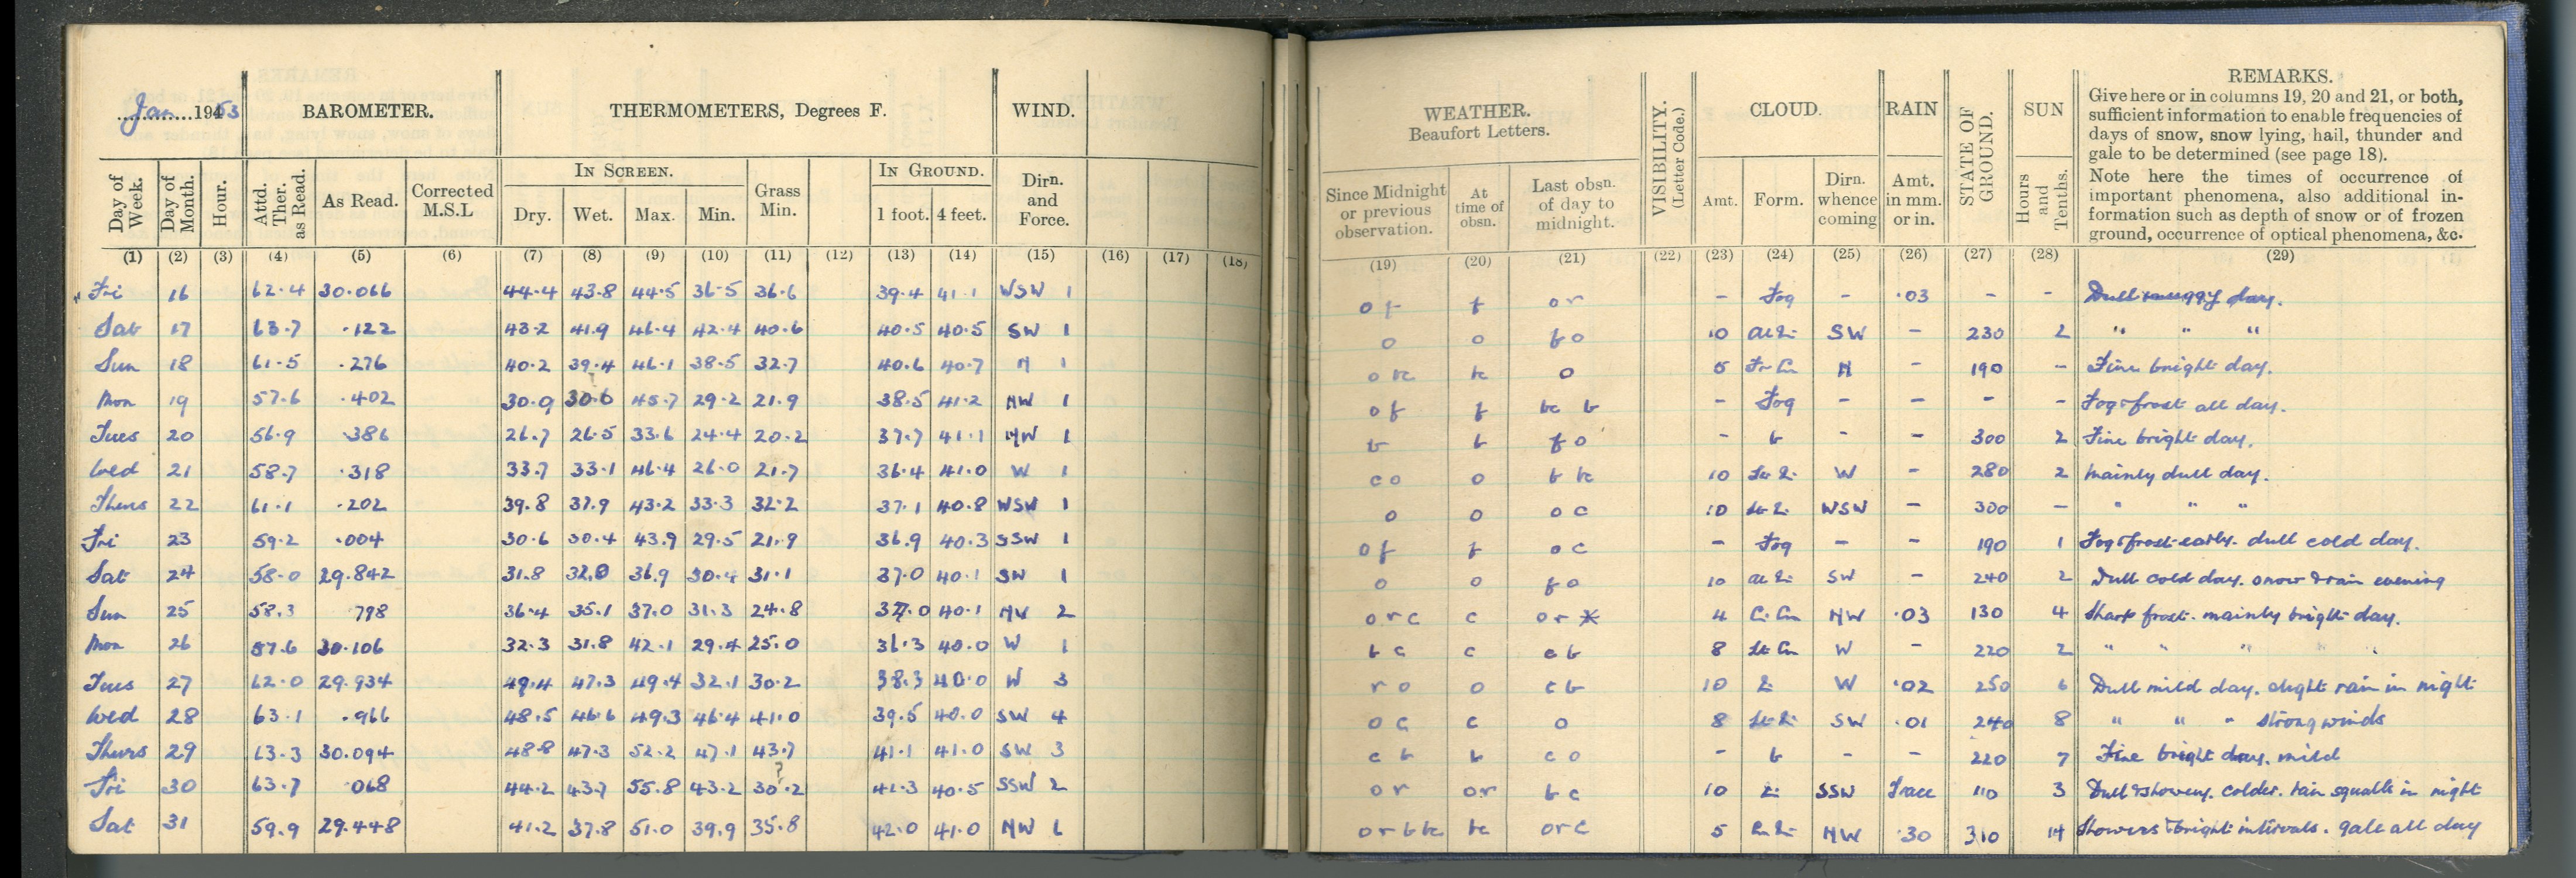 Jan 1953 BAROMETER. THERMOMETERS, Degrees F. WIND. WEATHER. Beaufort Letters. VISIBILITY. (Letter Code.) CLOUD. RAIN STATE OF GROUND. SUN REMARKS.
Give here or in columns 19, 20 and 21, or both,
sufficient information to enable frequencies of
days of snow, snow lying, hail, thunder and
gale to be determined (see page 18).
Note here the times of occurrence of
important phenomena, also additional in-
formation such as depth of snow or of frozen
ground, occurrence of optical phenomena, &c.
Day of Week. Day of Month. Hour. Attd. Ther. as Read. As Read. Corrected M.S.L IN SCREEN. Dry. Wet. Max. Min. Grass Min. IN GROUND. 1 foot. 4 feet. Dirn. and Force. Since Midnight or previous observation. At time of obsn. Last obsn. of day to midnight. Amt. Form. Dirn. whence coming Amt. in mm. or in. Hours and Tenths.
(1) (2) (3) (4) (5) (6) (7) (8) (9) (10) (11) (12) (13) (14) (15) (16) (17) (18) (19) (20) (21) (22) (23) (24) (25) (26) (27) (28) (29)
Fri 16 62.4 30.066 44.4 43.8 44.5 36.5 36.6 39.4 41.1 WSW 1 o f f o r - Fog - .03 - - Dull muggy day.
Sat 17 63.7 .122 43.2 41.9 46.4 42.4 40.6 40.5 40.5 SW 1 o o f o 10 SW - 230 2 " " "
Sun 18 61.5 .276 40.2 39.4 46.1 38.5 32.7 40.6 40.7 N 1 o bc bc o 5 Fr Cu N - 190 - Fine bright day.
Mon 19 57.6 .402 30.9 30.6 45.7 29.2 21.9 38.5 41.2 NW 1 o f f bc b - Fog - - - - Fog & frost all day.
Tues 20 56.9 .386 26.7 26.5 33.6 24.4 20.2 37.7 41.1 NW 1 b b f o - b - - 300 2 Fine bright day.
Wed 21 58.7 .318 33.7 33.1 46.4 26.0 21.7 36.4 41.0 W 1 c o o b bc 10 W - 280 2 Mainly dull day.
Thurs 22 61.1 .202 39.8 37.9 43.2 33.3 32.2 37.1 40.8 WSW 1 o o o c 10 WSW - 300 - " " "
Fri 23 59.2 .004 30.6 30.4 43.9 29.5 21.9 36.9 40.3 SSW 1 o f f o c - Fog - - 190 1 Fog & frost early. dull cold day.
Sat 24 58.0 29.842 31.8 32.0 36.9 30.4 31.1 37.0 40.1 SW 1 o o f o 10 SW - 240 2 Dull cold day. snow & rain evening
Sun 25 58.3 798 36.4 35.1 37.0 31.3 24.8 37.0 40.1 NW 2 o r c c o r * 4 Cu NW .03 130 4 Sharp frost. mainly bright day.
Mon 26 57.6 30.106 32.3 31.8 42.1 29.4 25.0 36.3 40.0 W 1 b c c c b 8 St Cu W - 220 2 " " " "
Tues 27 62.0 29.934 49.4 47.3 49.4 32.1 30.2 38.3 40.0 W 3 r o o c b 10 W .02 250 6 Dull mild day. slight rain in night
Wed 28 63.1 .966 48.5 46.6 49.3 46.4 41.0 39.5 40.0 SW 4 o c c o 8 SW .01 240 8 " " " strong winds
Thurs 29 63.3 30.094 48.8 47.3 52.2 47.1 43.7 41.1 41.0 SW 3 c b b c o - b - - 220 7 Fine bright day. mild
Fri 30 63.7 068 44.2 43.7 55.8 43.2 30.2 ? 41.3 40.5 SSW 2 o r o r b c 10 SSW Trace 110 3 Dull & showery. colder. rain squalls in night
Sat 31 59.9 29.448 41.2 37.8 51.0 39.9 35.8 42.0 41.0 NW 6 o r b bc bc o r c 5 NW .30 310 14 Showers & bright intervals. gale all day